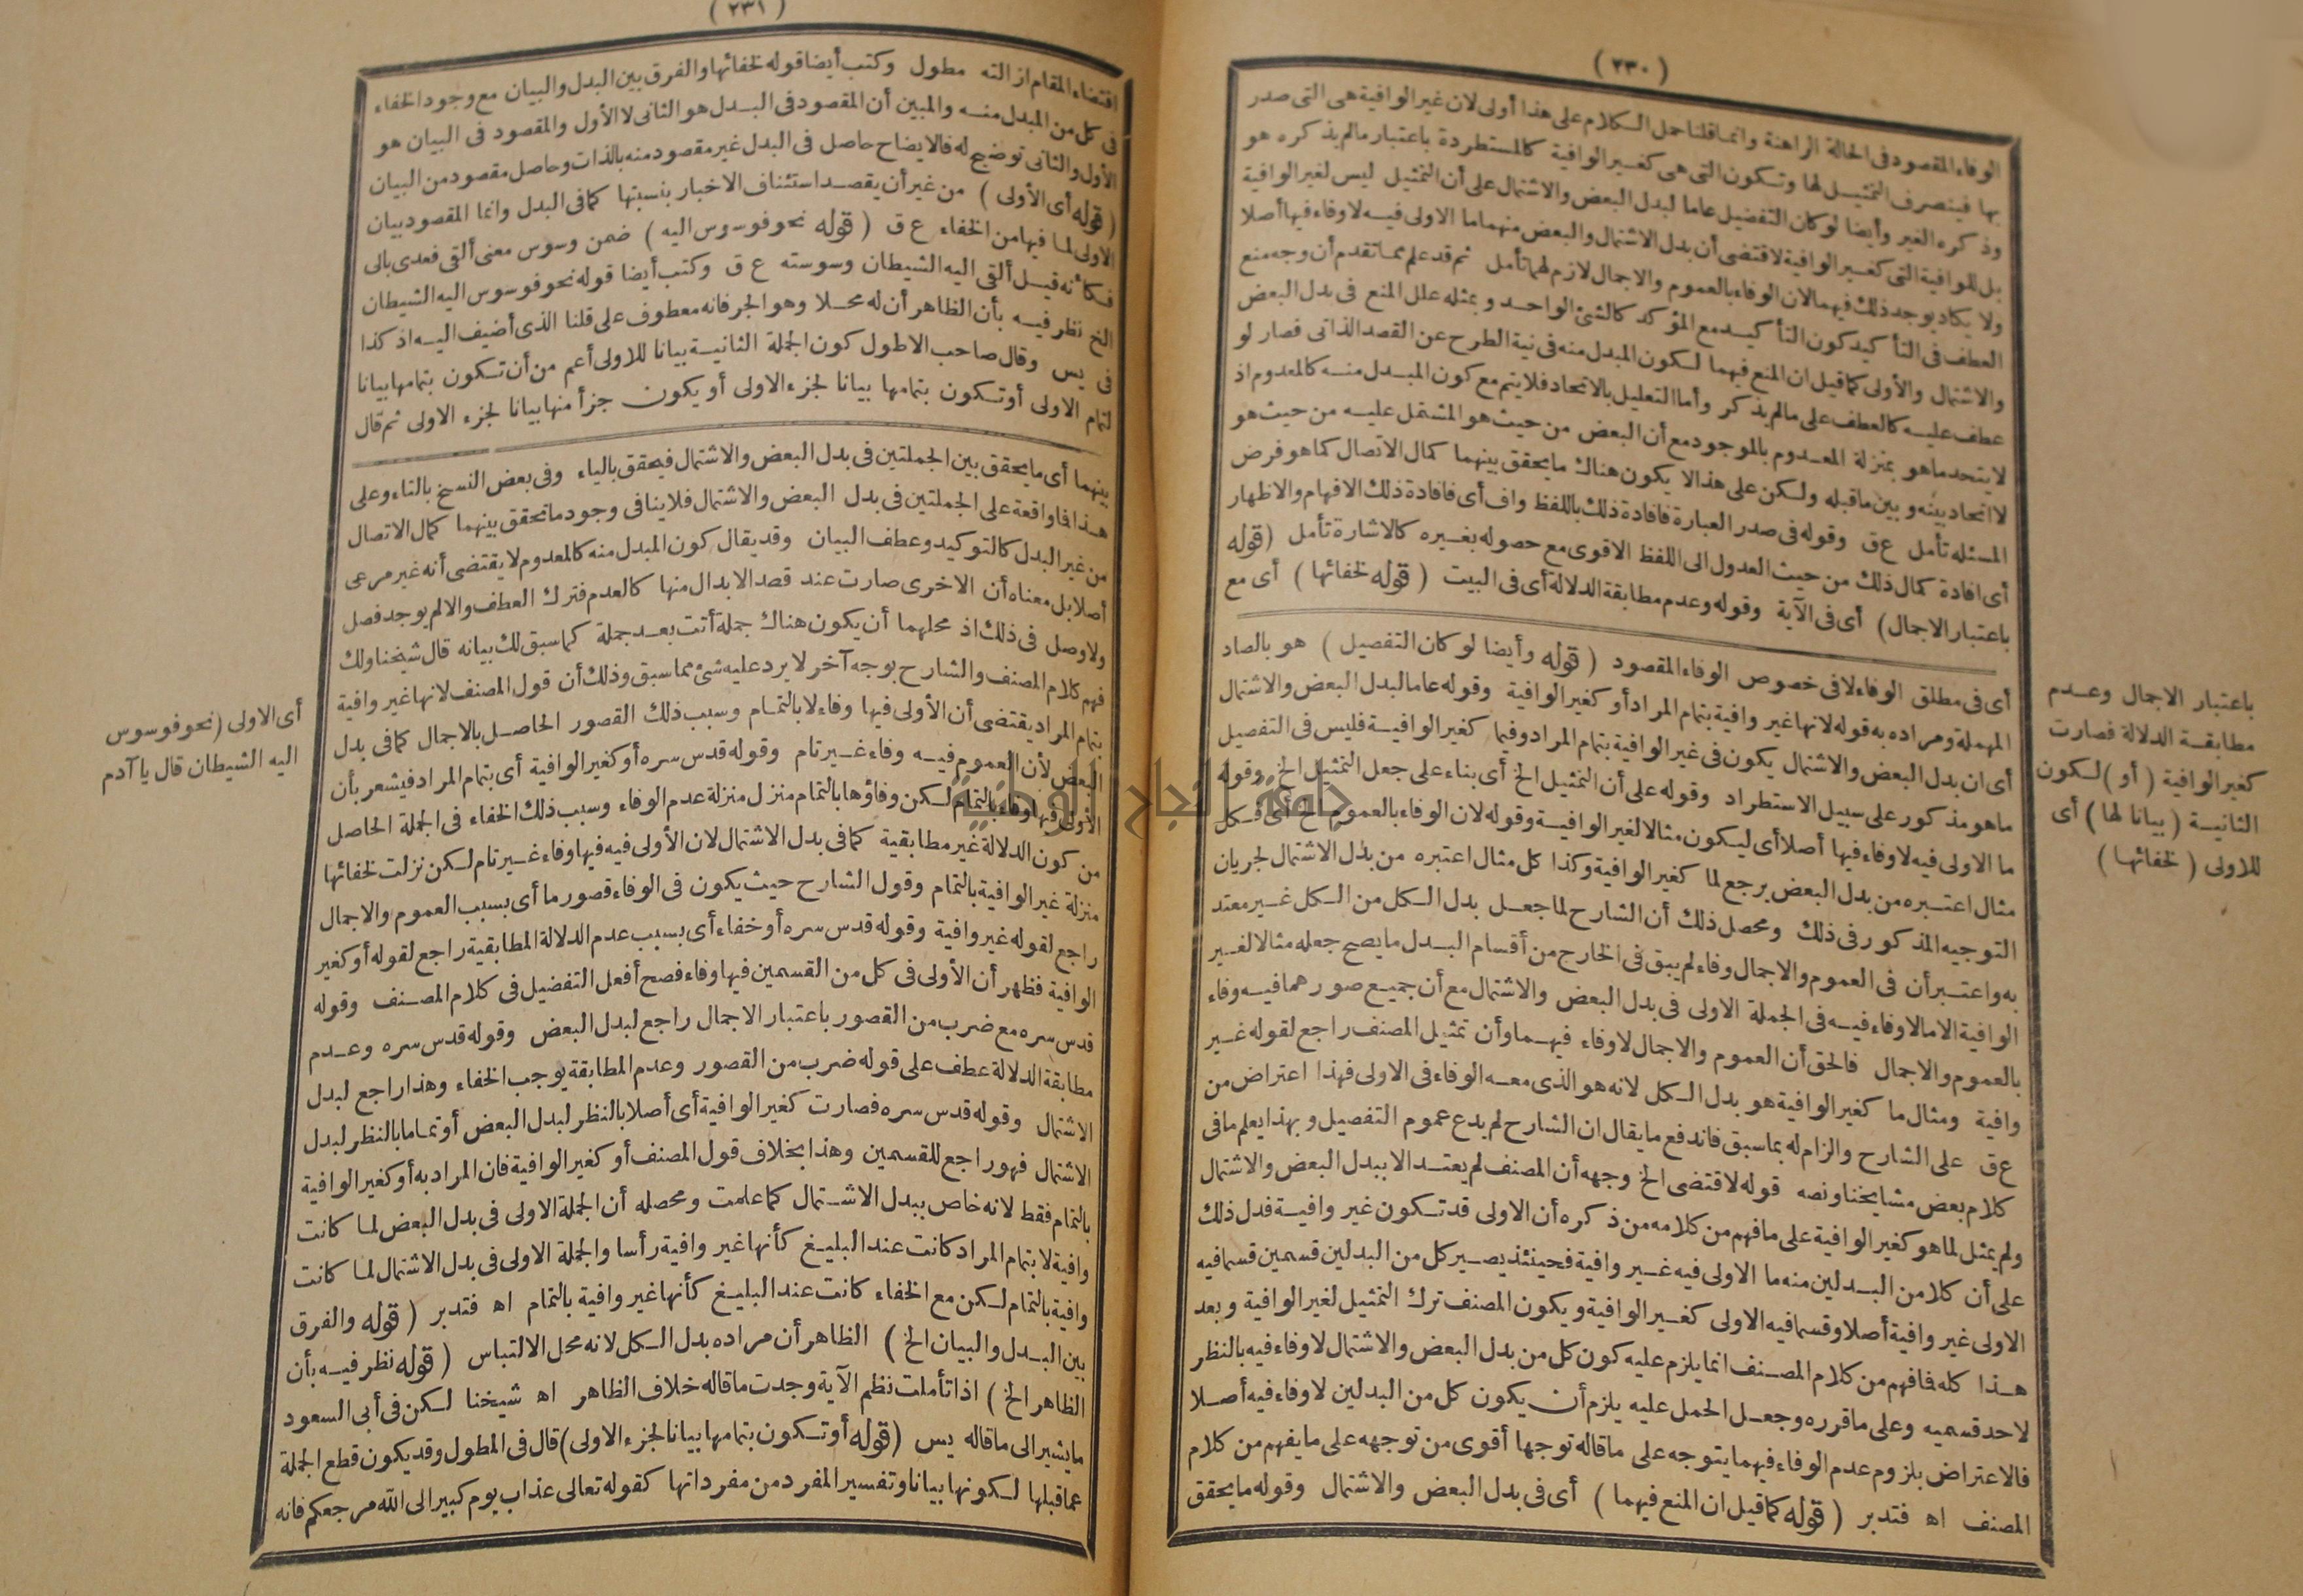 (٢٣٠)
الوفاء المقصود فى الحالة الراهنة وانما قلنا حمل الكلام على هذا أولى لان غير الوافية هى التى صدر
بها فينصرف التمثيل لها وتكون التى هى كغير الوافية كالمستطردة باعتبار مالم يذكره هو
وذكره الغير وأيضا لو كان التفضيل عاما لبدل البعض والاشتمال على أن التمثيل ليس لغير الوافية
بل للوافية التى كغير الوافية لاقتضى أن بدل الاشتمال والبعض منهما ما الاولى فيه لا وفاء فيها أصلا
ولا يكاد يوجد ذلك فيهما لان الوفاء بالعموم والاجمال لازم لهما تأمل ثم قد علم مما تقدم أن وجه منع
العطف فى التأكيد كون التأكيد مع المؤكد كالشئ الواحد وبمثله علل المنع فى بدل البعض
والاشتمال والأولى كما قيل ان المنع فيهما لكون المبدل منه فى نية الطرح عن القصد الذاتى فصار لو
عطف عليه كالعطف على مالم يذكر وأما التعليل بالاتحاد فلا يتم مع كون المبدل منه كالمعدوم اذ
لا يتحد ما هو بمنزلة المعدوم بالموجود مع أن البعض من حيث هو المشتمل عليه من حيث هو
لا اتحاد بينه وبين ما قبله ولكن على هذا لا يكون هناك ما يحقق بينهما كمال الاتصال كما هو فرض
المسئلة تأمل ع ق وقوله فى صدر العبارة فافادة ذلك باللفظ واف أى فافادة ذلك الافهام والاظهار
أى افادة كمال ذلك من حيث العدول الى اللفظ الاقوى مع حصوله بغيره كالاشارة تأمل (قوله
باعتبار الاجمال) أى فى الآية وقوله وعدم مطابقة الدلالة أى فى البيت (قوله لخفائها) أى مع
أى فى مطلق الوفاء لا فى خصوص الوفاء المقصود (قوله وأيضا لو كان التفصيل) هو بالصاد
المهملة ومراده به قوله لانها غير وافية بتمام المراد أو كغير الوافية وقوله عاما لبدل البعض والاشتمال
أى ان بدل البعض والاشتمال يكون فى غير الوافية بتمام المراد وفيما كغير الوافية فليس فى التفصيل
ما هو مذكور على سبيل الاستطراد وقوله على أن التمثيل الخ أى بناء على جعل التمثيل الخ وقوله
ما الاولى فيه لا وفاء فيها أصلا أى ليكون مثالا لغير الوافية وقوله لان الوفاء بالعموم الخ أى فكل
مثال اعتبره من بدل البعض يرجع لما كغير الوافية وكذا كل مثال اعتبره من بدل الاشتمال لجريان
التوجيه المذكور فى ذلك ومحصل ذلك أن الشارح لما جعل بدل الكل من الكل غير معتد
به واعتبر أن فى العموم والاجمال وفاء لم يبق فى الخارج من أقسام البدل ما يصح جعله مثالا لغير
الوافية الا ما لا وفاء فيه فى الجملة الاولى فى بدل البعض والاشتمال مع أن جميع صورهما فيه وفاء
بالعموم والاجمال فالحق أن العموم والاجمال لا وفاء فيهما وأن تمثيل المصنف راجع لقوله غير
وافية ومثال ما كغير الوافية هو بدل الكل لانه هو الذى معه الوفاء فى الاولى فهذا اعتراض من
ع ق على الشارح والزام له بما سبق فاندفع ما يقال ان الشارح لم يدع عموم التفصيل وبهذا يعلم ما فى
كلام بعض مشايخنا ونصه قوله لاقتضى الخ وجهه أن المصنف لم يعتد الا ببدل البعض والاشتمال
ولم يمثل لما هو كغير الوافية على ما فهم من كلامه من ذكره أن الاولى قد تكون غير وافية فدل ذلك
على أن كلا من البدلين منه ما الاولى فيه غير وافية فحينئذ يصير كل من البدلين قسمين قسما فيه
الاولى غير وافية أصلا وقسما فيه الاولى كغير الوافية ويكون المصنف ترك التمثيل لغير الوافية وبعد
هذا كله فافهم من كلام المصنف انما يلزم عليه كون كل من بدل البعض والاشتمال لا وفاء فيه بالنظر
لاحد قسميه وعلى ما قرره وجعل الحمل عليه يلزم أن يكون كل من البدلين لا وفاء فيه أصلا
فالاعتراض بلزوم عدم الوفاء فيهما يتوجه على ما قاله توجها أقوى من توجهه على ما يفهم من كلام
المصنف اه فتدبر (قوله كما قيل ان المنع فيهما) أى فى بدل البعض والاشتمال وقوله ما يحقق
باعتبار الاجمال وعدم
مطابقة الدلالة فصارت
كغير الوافية (أو) لكون
الثانية (بيانا لها) أى
للاولى (لخفائها)
(٢٣١)
اقتضاء المقام ازالته مطول وكتب أيضا قوله لخفائها والفرق بين البدل والبيان مع وجود الخفاء
فى كل من المبدل منه والمبين أن المقصود فى البدل هو الثانى لا الأول والمقصود فى البيان هو
الأول والثانى توضيح له فالايضاح حاصل فى البدل غير مقصود منه بالذات وحاصل مقصود من البيان
(قوله أى الأولى) من غير أن يقصد استئناف الاخبار بنسبتها كما فى البدل وانما المقصود بيان
الاولى لما فيها من الخفاء ع ق (قوله نحو فوسوس اليه) ضمن وسوس معنى ألقى فعدى بالى
فكأنه قيل ألقى اليه الشيطان وسوسته ع ق وكتب أيضا قوله نحو فوسوس اليه الشيطان
الخ نظر فيه بأن الظاهر أن له محلا وهو الجر فانه معطوف على قلنا الذى أضيف اليه اذ كذا
فى يس وقال صاحب الاطول كون الجملة الثانية بيانا للاولى أعم من أن تكون بتمامها بيانا
لتمام الاولى أو تكون بتمامها بيانا لجزء الاولى أو يكون جزأ منها بيانا لجزء الاولى ثم قال
بينهما أى ما يحقق بين الجملتين فى بدل البعض والاشتمال فيحقق بالياء وفى بعض النسخ بالتاء وعلى
هذا فما واقعة على الجملتين فى بدل البعض والاشتمال فلا ينافى وجود ما تحقق بينهما كمال الاتصال
من غير البدل كالتوكيد وعطف البيان وقد يقال كون المبدل منه كالمعدوم لا يقتضى أنه غير مرعى
أصلا بل معناه أن الاخرى صارت عند قصد الابدال منها كالعدم فترك العطف والا لم يوجد فصل
ولا وصل فى ذلك اذ محلهما أن يكون هناك جملة أتت بعد جملة كما سبق لك بيانه قال شيخنا ولك
فهم كلام المصنف والشارح بوجه آخر لا يرد عليه شئ مما سبق وذلك أن قول المصنف لانها غير وافية
بتمام المراد يقتضى أن الأولى فيها وفاء لا بالتمام وسبب ذلك القصور الحاصل بالاجمال كما فى بدل
البعض لأن العموم فيه وفاء غير تام وقوله قدس سره أو كغير الوافية أى بتمام المراد فيشعر بأن
الأولى فيها وفاء بالتمام لكن وفاؤها بالتمام منزل منزلة عدم الوفاء وسبب ذلك الخفاء فى الجملة الحاصل
من كون الدلالة غير مطابقية كما فى بدل الاشتمال لان الأولى فيه فيها وفاء غير تام لكن نزلت لخفائها
منزلة غير الوافية بالتمام وقول الشارح حيث يكون فى الوفاء قصور ما أى بسبب العموم والاجمال
راجع لقوله غير وافية وقوله قدس سره أو خفاء أى بسبب عدم الدلالة المطابقية راجع لقوله أو كغير
الوافية فظهر أن الأولى فى كل من القسمين فيها وفاء فصح أفعل التفضيل فى كلام المصنف وقوله
قدس سره مع ضرب من القصور باعتبار الاجمال راجع لبدل البعض وقوله قدس سره وعدم
مطابقة الدلالة عطف على قوله ضرب من القصور وعدم المطابقة يوجب الخفاء وهذا راجع لبدل
الاشتمال وقوله قدس سره فصارت كغير الوافية أى أصلا بالنظر لبدل البعض أو تماما بالنظر لبدل
الاشتمال فهو راجع للقسمين وهذا بخلاف قول المصنف أو كغير الوافية فان المراد به أو كغير الوافية
بالتمام فقط لانه خاص ببدل الاشتمال كما علمت ومحصله أن الجملة الاولى فى بدل البعض لما كانت
وافية لا بتمام المراد كانت عند البليغ كأنها غير وافية رأسا والجملة الاولى فى بدل الاشتمال لما كانت
وافية بالتمام لكن مع الخفاء كانت عند البليغ كأنها غير وافية بالتمام اه فتدبر (قوله والفرق
بين البدل والبيان الخ) الظاهر أن مراده بدل الكل لانه محل الالتباس (قوله نظر فيه بأن
الظاهر الخ) اذا تأملت نظم الآية وجدت ما قاله خلاف الظاهر اه شيخنا لكن فى أبى السعود
ما يشير الى ما قاله يس (قوله أو تكون بتمامها بيانا لجزء الاولى) قال فى المطول وقد يكون قطع الجملة
عما قبلها لكونها بيانا وتفسير المفرد من مفرداتها كقوله تعالى عذاب يوم كبير الى الله مرجعكم فانه
أى الاولى (نحو فوسوس
اليه الشيطان قال يا آدم
جامعة النجاح الوطنية